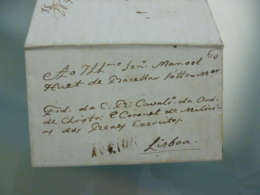 60
Ao Illmo Senr Manoel
Huet de Bacellar Sotto Mor
Fid. da C. R. Cavalo da Ord.
de Christo e Coronel de Milicias
dos Reaes Exercitos
Lisboa.